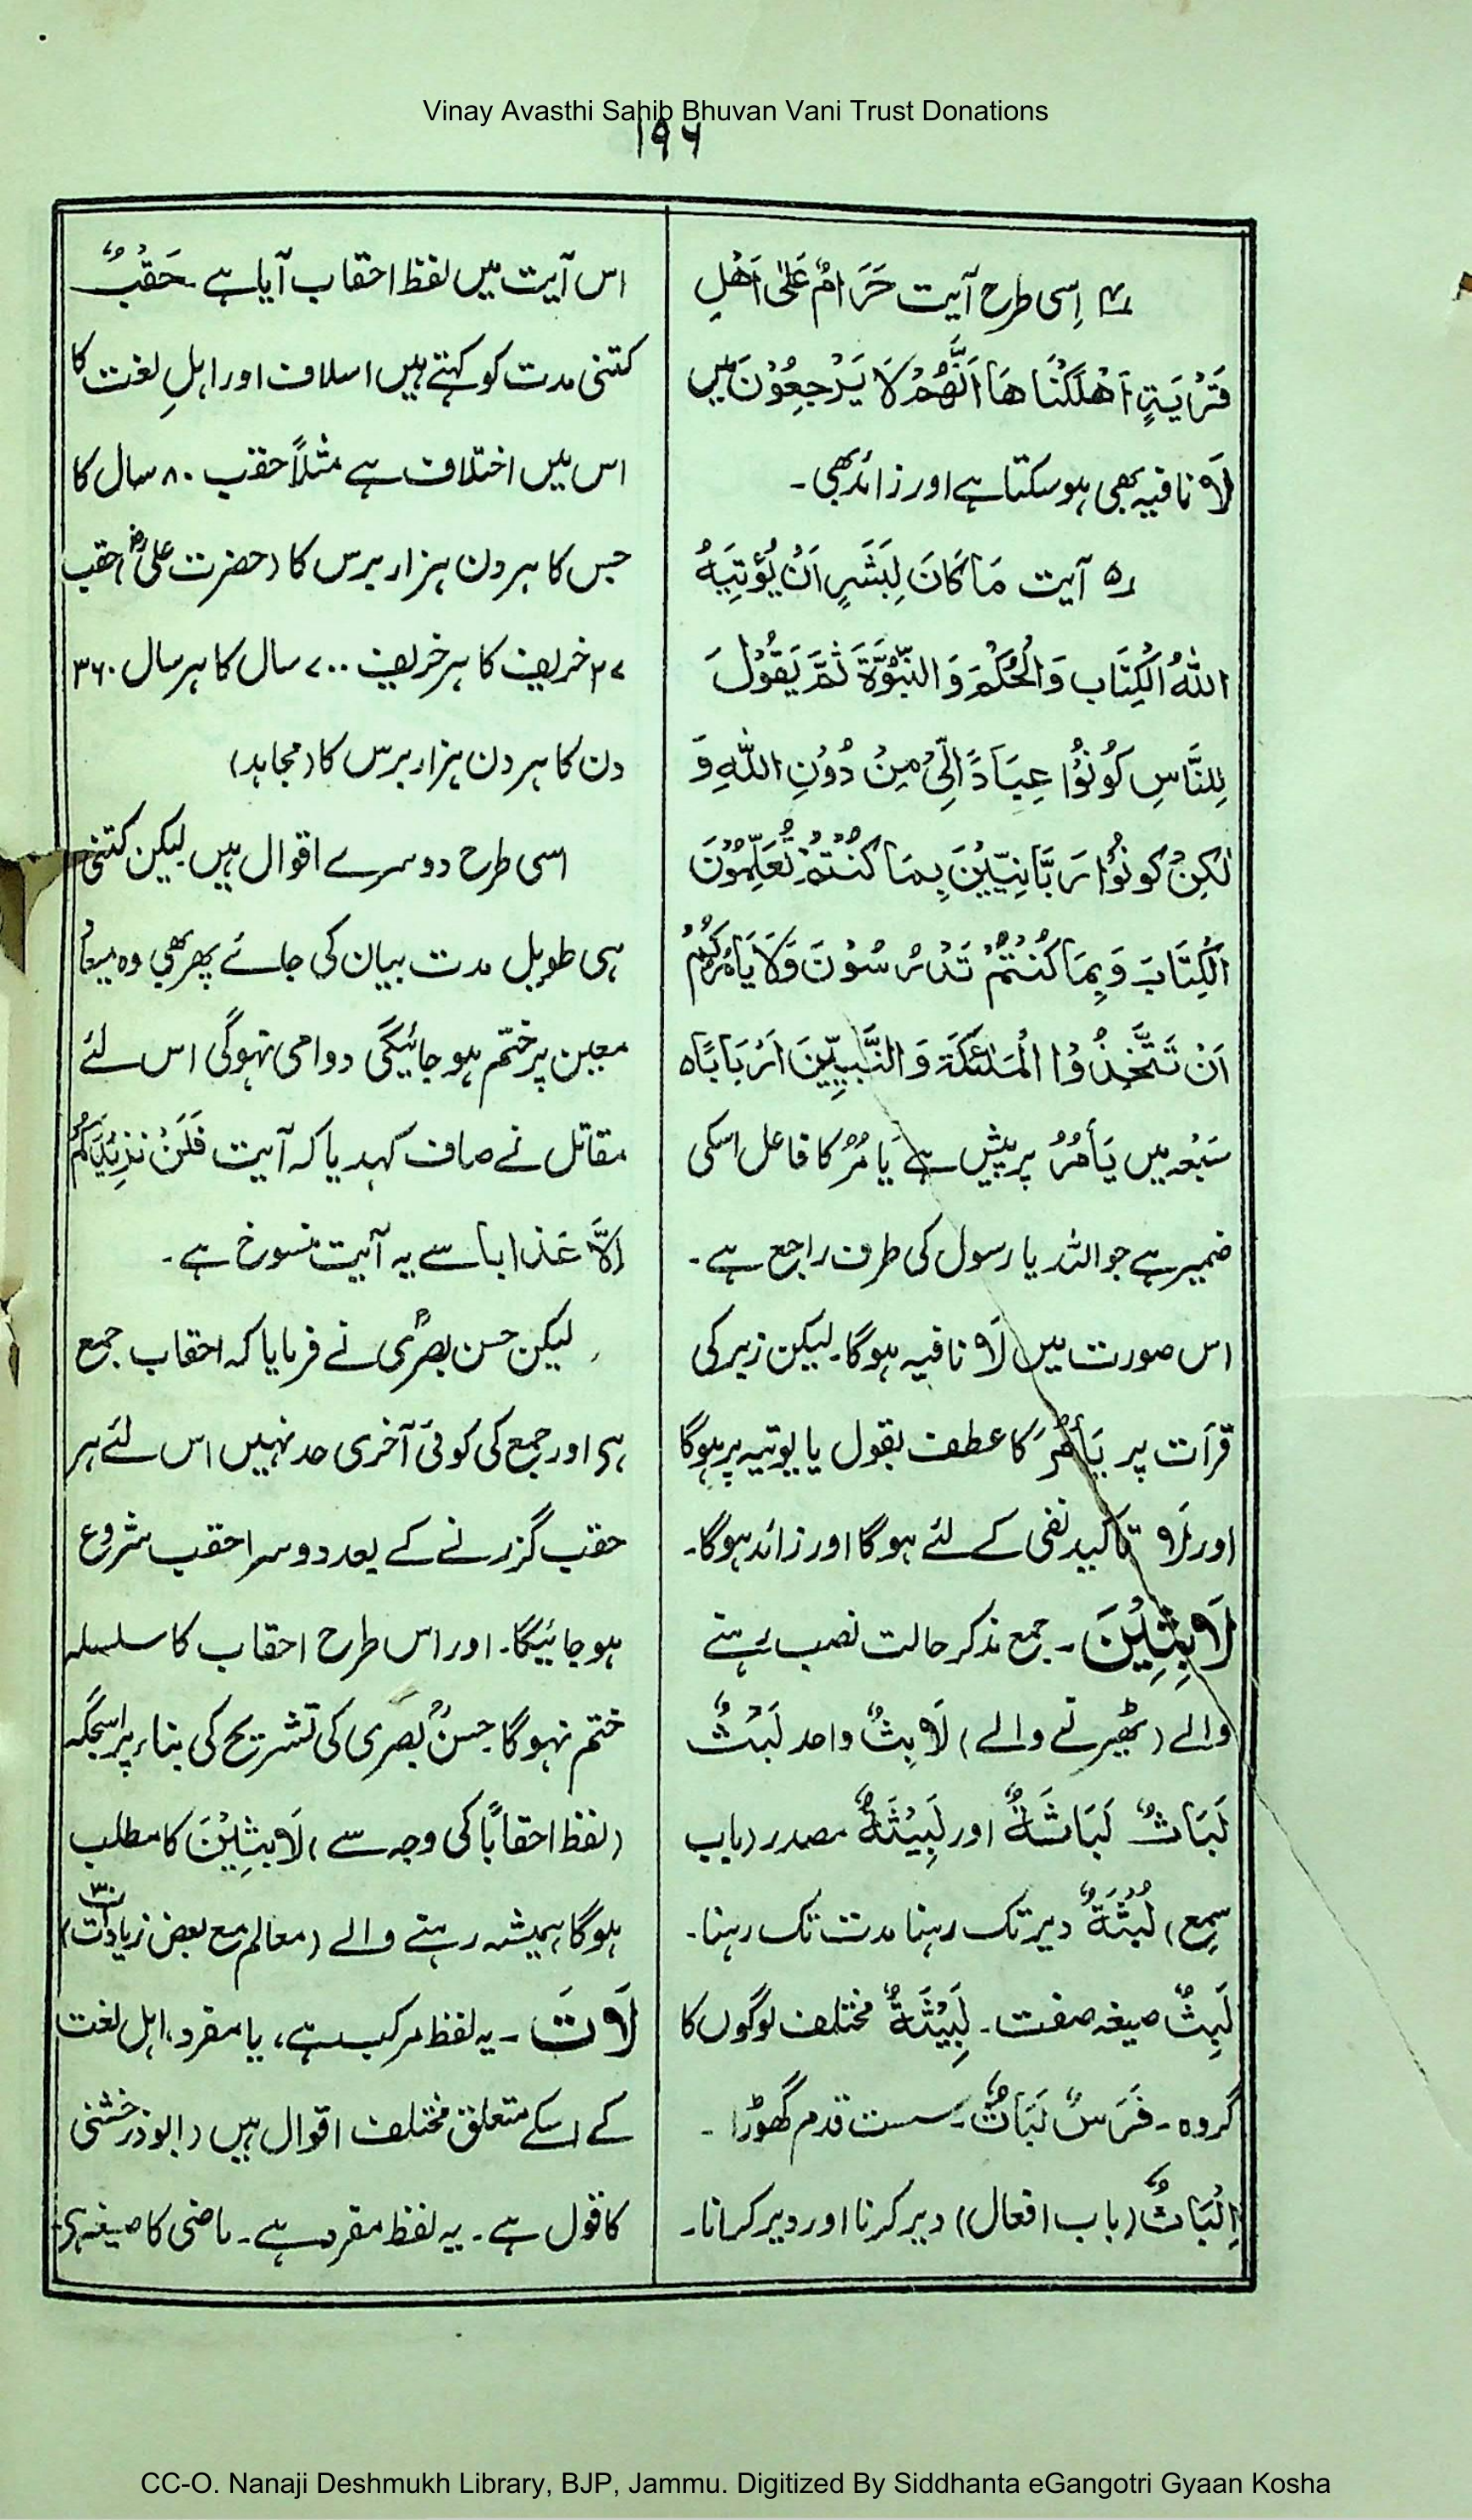 Vinay Avasthi Sahib Bhuvan Vani Trust Donations
۱۹۶
۴؍ اِسی طرح آیت حَرَامٌ عَلٰی اَهْلِ
قَرْیَۃٍ اَهْلَکْنَاهَا اَنَّهُمْ لَا یَرْجِعُوْنَ میں
لَا نافیہ بھی ہو سکتا ہے اور زائد بھی۔
۵؍ آیت مَا کَانَ لِبَشَرٍ اَنْ یُّؤْتِیَہُ
اللّٰہُ الْکِتَابَ وَالْحُکْمَ وَ النُّبُوَّۃَ ثُمَّ یَقُوْلَ
لِلنَّاسِ کُوْنُوْا عِبَادًا لِّیْ مِنْ دُوْنِ اللّٰہِ وَ
لٰکِنْ کُوْنُوْا رَبَّانِیّٖیْنَ بِمَا کُنْتُمْ تُعَلِّمُوْنَ
الْکِتَابَ وَ بِمَا کُنْتُمْ تَدْرُسُوْنَ وَلَا یَاْمُرُکُمْ
اَنْ تَتَّخِذُوا الْمَلٰئِکَۃَ وَ النَّبِیِّیْنَ اَرْبَابًا ہ
سَبْعہ میں یَأمُرُ پر پیش ہے یَامُرُ کا فاعل اسکی
ضمیر ہے جو اللہ یا رسول کی طرف راجع ہے۔
اس صورت میں لَا نافیہ ہوگا۔ لیکن زبر کی
قرأت پر یَأمُرَ کا عطف یقول یا یوتیہ پر ہوگا
اور لَا تاکید نفی کے لئے ہوگا اور زائد ہوگا۔
لَابِثِیْنَ۔ جمع مذکر حالت نصب رہنے
والے (ٹھیرنے والے) لَابِثٌ واحد لَبْثٌ
لَبَاثٌ لَبَاثَۃٌ اور لَبِیْثَۃٌ مصدر (باب
سمع) لُبْثَۃٌ دیر تک رہنا مدت تک رہنا۔
لَبِثٌ صیغہ صفت۔ لَبِیْثَۃٌ مختلف لوگوں کا
گروہ۔ فَرَسٌ لَبَاثٌ۔ سست قدم گھوڑا۔
اِلْبَاثٌ (باب افعال) دیر کرنا اور دیر کرانا۔
اس آیت میں لفظ احقاب آیا ہے۔ حَقُبٌ
کتنی مدت کو کہتے ہیں اسلاف اور اہلِ لغت کا
اس میں اختلاف ہے مثلاً حقب ۸۰ سال کا
جس کا ہر دن ہزار برس کا (حضرت علیؓ) حقب
۲۷ خریف کا ہر خریف ۷۰۰ سال کا ہر سال ۳۶۰
دن کا ہر دن ہزار برس کا (مجاہد)
اسی طرح دوسرے اقوال ہیں لیکن کتنی
ہی طویل مدت بیان کی جائے پھر بھی وہ
معین پر ختم ہو جائیگی دوامی نہوگی اس لئے
مقاتل نے صاف کہدیا کہ آیت فَلَنْ نَزِیْدَکُمْ
اِلَّا عَذَابا سے یہ آیت منسوخ ہے۔
لیکن حسن بصریؒ نے فرمایا کہ احقاب جمع
ہے اور جمع کی کوئی آخری حد نہیں اس لئے ہر
حقب گزرنے کے بعد دوسرا حقب شروع
ہو جائیگا۔ اور اس طرح احقاب کا سلسلہ
ختم نہوگا حسنؒ بصری کی تشریح کی بناء پر اسجگہ
(لفظ احقابًا کی وجہ سے) لَابِثِیْنَ کا مطلب
ہوگا ہمیشہ رہنے والے (معالم مع بعض زیادات)
لَاتَ۔ یہ لفظ مرکب ہے، یا مفرد، اہل لغت
کے اسکے متعلق مختلف اقوال ہیں (ابو ذر خشنی
کا قول ہے۔ یہ لفظ مفرد ہے۔ ماضی کا صیغہ ہے
CC-O. Nanaji Deshmukh Library, BJP, Jammu. Digitized By Siddhanta eGangotri Gyaan Kosha